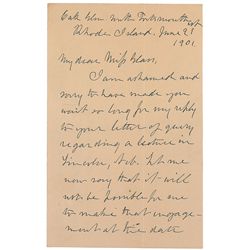 Oak Glen
Rhode Island, June 25
1901.
My dear Miss
I am ashamed and
sorry to have made you
wait so long for my reply
to your letter of query
regarding a lecture in
Lincoln, Neb. Let me
now say that it will
not be possible for me
to make that engage-
ment at the date